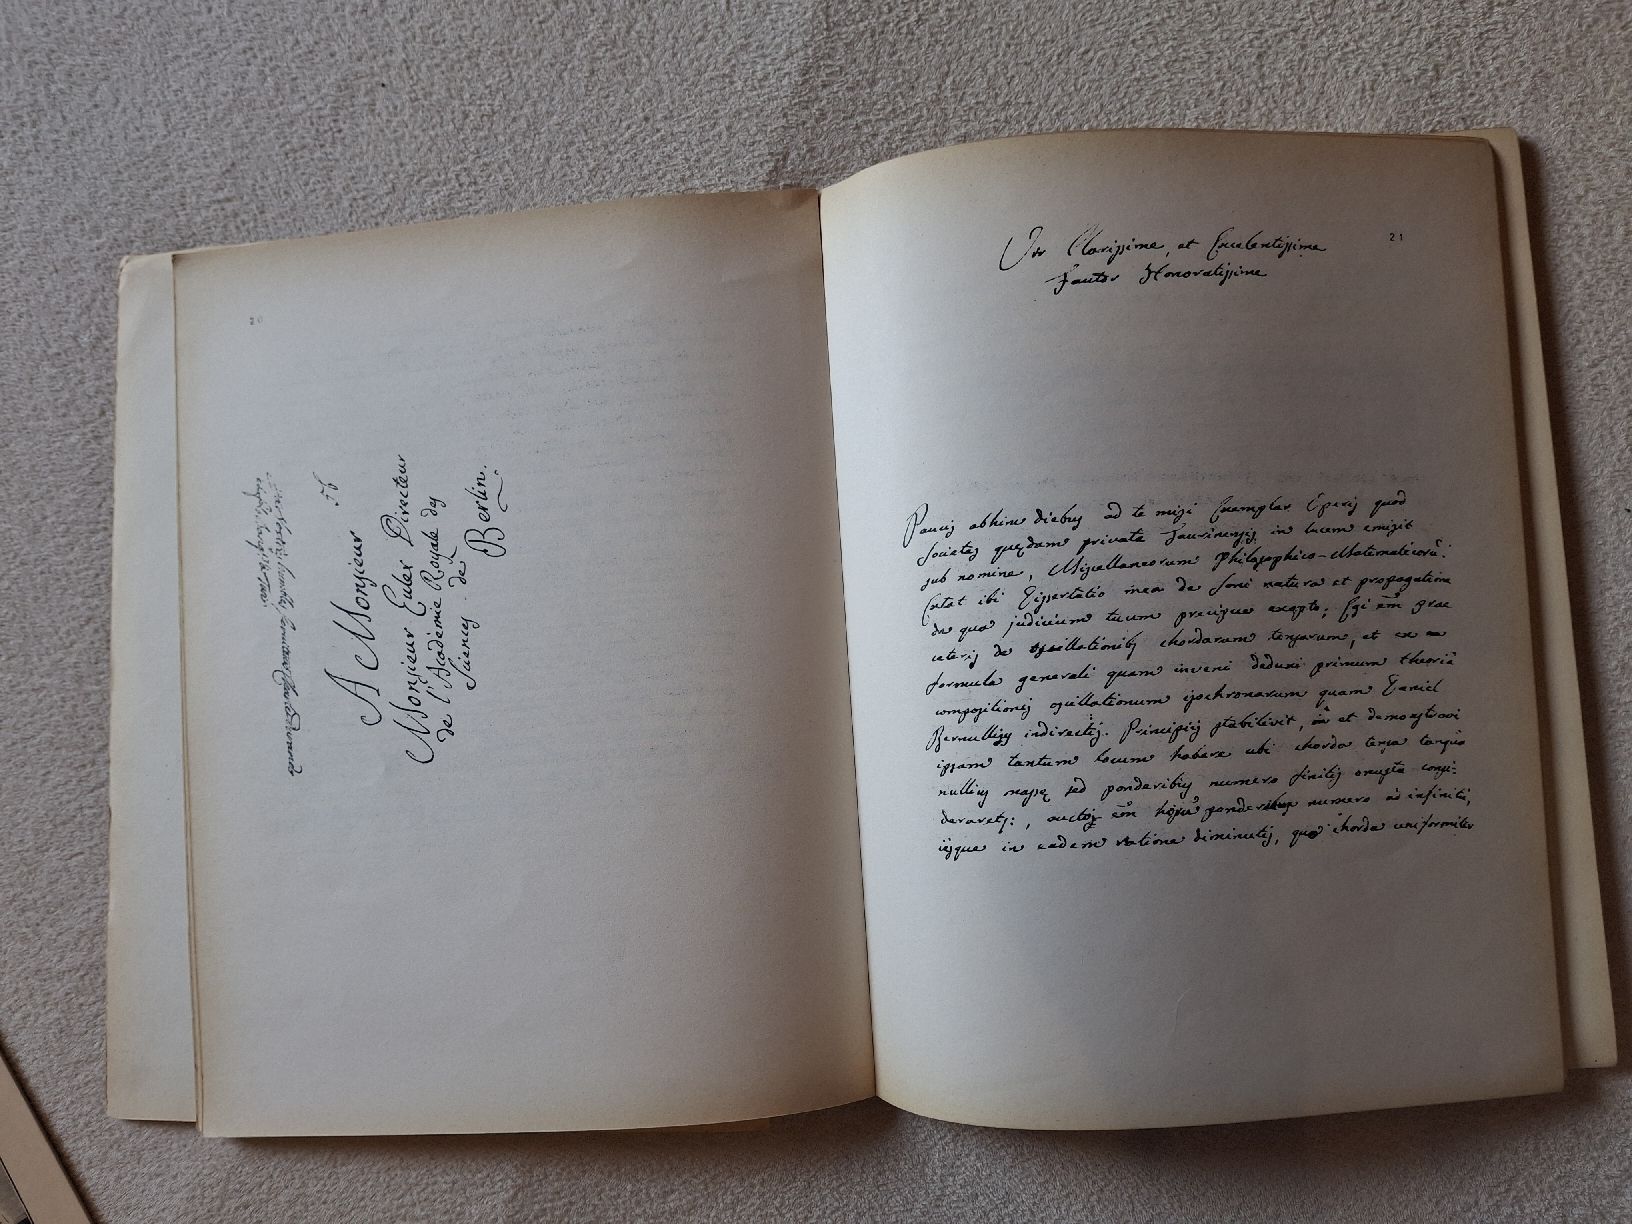 20
56
A Monsieur
Monsieur Euler Directeur
de l'Académie Royale des
Sciences de
Berlin.
21
Vir Clarissime, et Excelentissime
Fautor Honoratissime
Paucis abhinc diebus ad te misi Exemplar Operis quod
Societas quędam privata Taurinensis in lucem emisit
sub nomine, Miscellaneorum Philosophico-Matematicorū:
Extat ibi Dissertatio mea de Soni natura et propagatione
de qua judicium tuum precipue exopto; Egi em̄ prae
ceteris de oscillationibs chordarum tensarum, et ex
formula generali quam inveni deduxi primum theoriā
compositionis oscillationum isochronarum quam Daniel
Bernullius indirectis Principiis stabilivit, et demostravi
ipsam tantum locum habere ubi chorda tensa tanquā
nullius massę sed ponderibus numero finitis onusta consi-
deraretr:, auctis em̄ horū ponderibus numero ad infinitū,
iisque in eadem ratione diminutis, quo chorda uniformiter